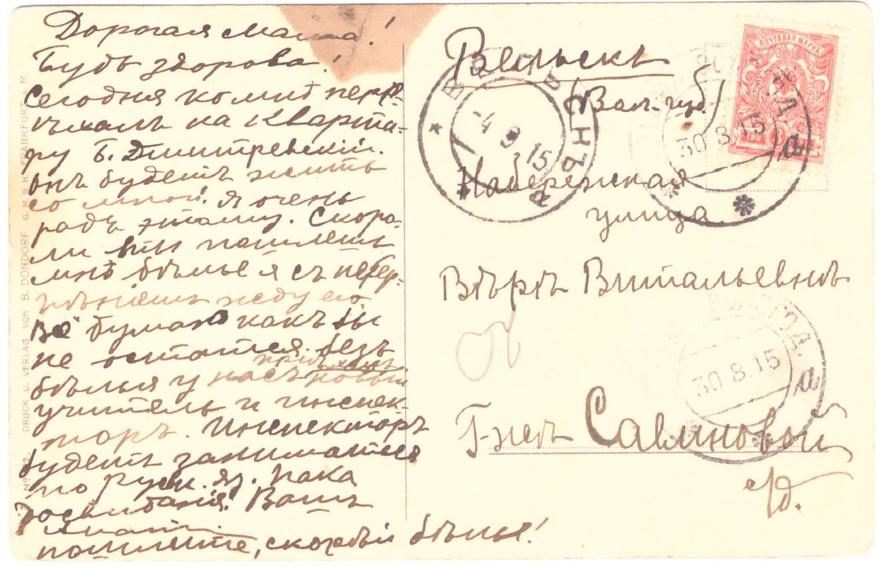 Дорогая мама!
Будь здорова!
Сегодня ко мнѣ пере-
ѣхалъ на кварти-
ру Б. Дмитревскій.
онъ будетъ жить
со мной. Я очень
радъ этому. Скоро-
ли вы пошлете
мнѣ бѣлье я съ
нѣнiемъ жду его
Всё думаю какъ бы
не остаться безъ
бѣлья у насъ новый
учитель и инспек-
торъ. Инспекторъ
будетъ заниматься
по русск. яз. Пока
досвиданiя. Вашъ
пошлите, скорѣй бѣлья!
Вельскъ
Вол. губ.
Набережная
улица.
Вѣрѣ Витальевнѣ
Г-жѣ Савиновой
с/д.
ПОЧТОВАЯ МАРКА
ВЕЛЬСКЪ
-4 9 15
30 8 15
а
ВОЛОГДА
30 8 15
а
DRUCK U. VERLAG VON B. DONDORF G.M.B.H. FRANKFURT A.M.